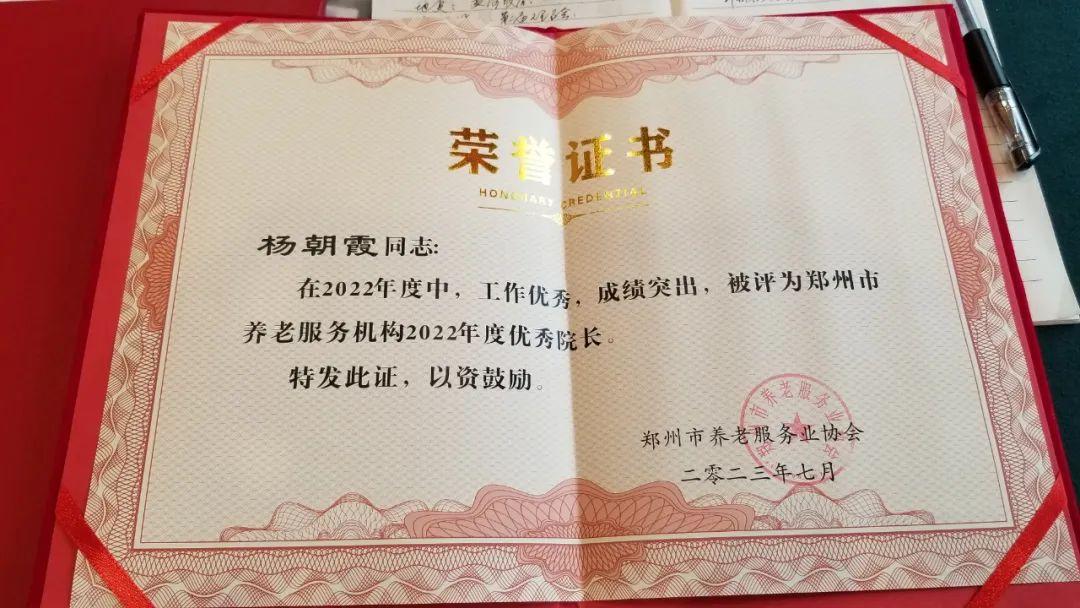 荣誉证书
HONORARY CREDENTIAL
杨朝霞同志:
在2022年度中，工作优秀，成绩突出，被评为郑州市
养老服务机构2022年度优秀院长。
特发此证，以资鼓励。
郑州市养老服务业协会
二零二三年七月
郑州市养老服务业协会